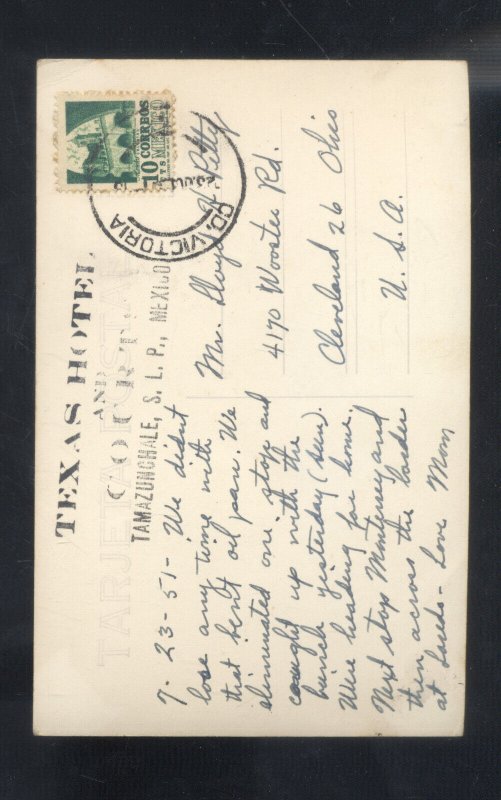 TEXAS HOTEL
AND
COURTS
TAMAZUNCHALE, S. L. P., MEXICO
TARJETA POSTAL
7-23-51- We didn't
lose any time with
that bent oil pan. We
eliminated one stop and
caught up with the
bunch yesterday (sun).
We're heading for home.
Next stop Monterrey and
then across the border
at Laredo - Love Mom
10 CORREOS
CTS MEXICO
CD. VICTORIA
JUL
Mr. Petty
4170 Wooster Rd.
Cleveland 26 Ohio
U. S. A.